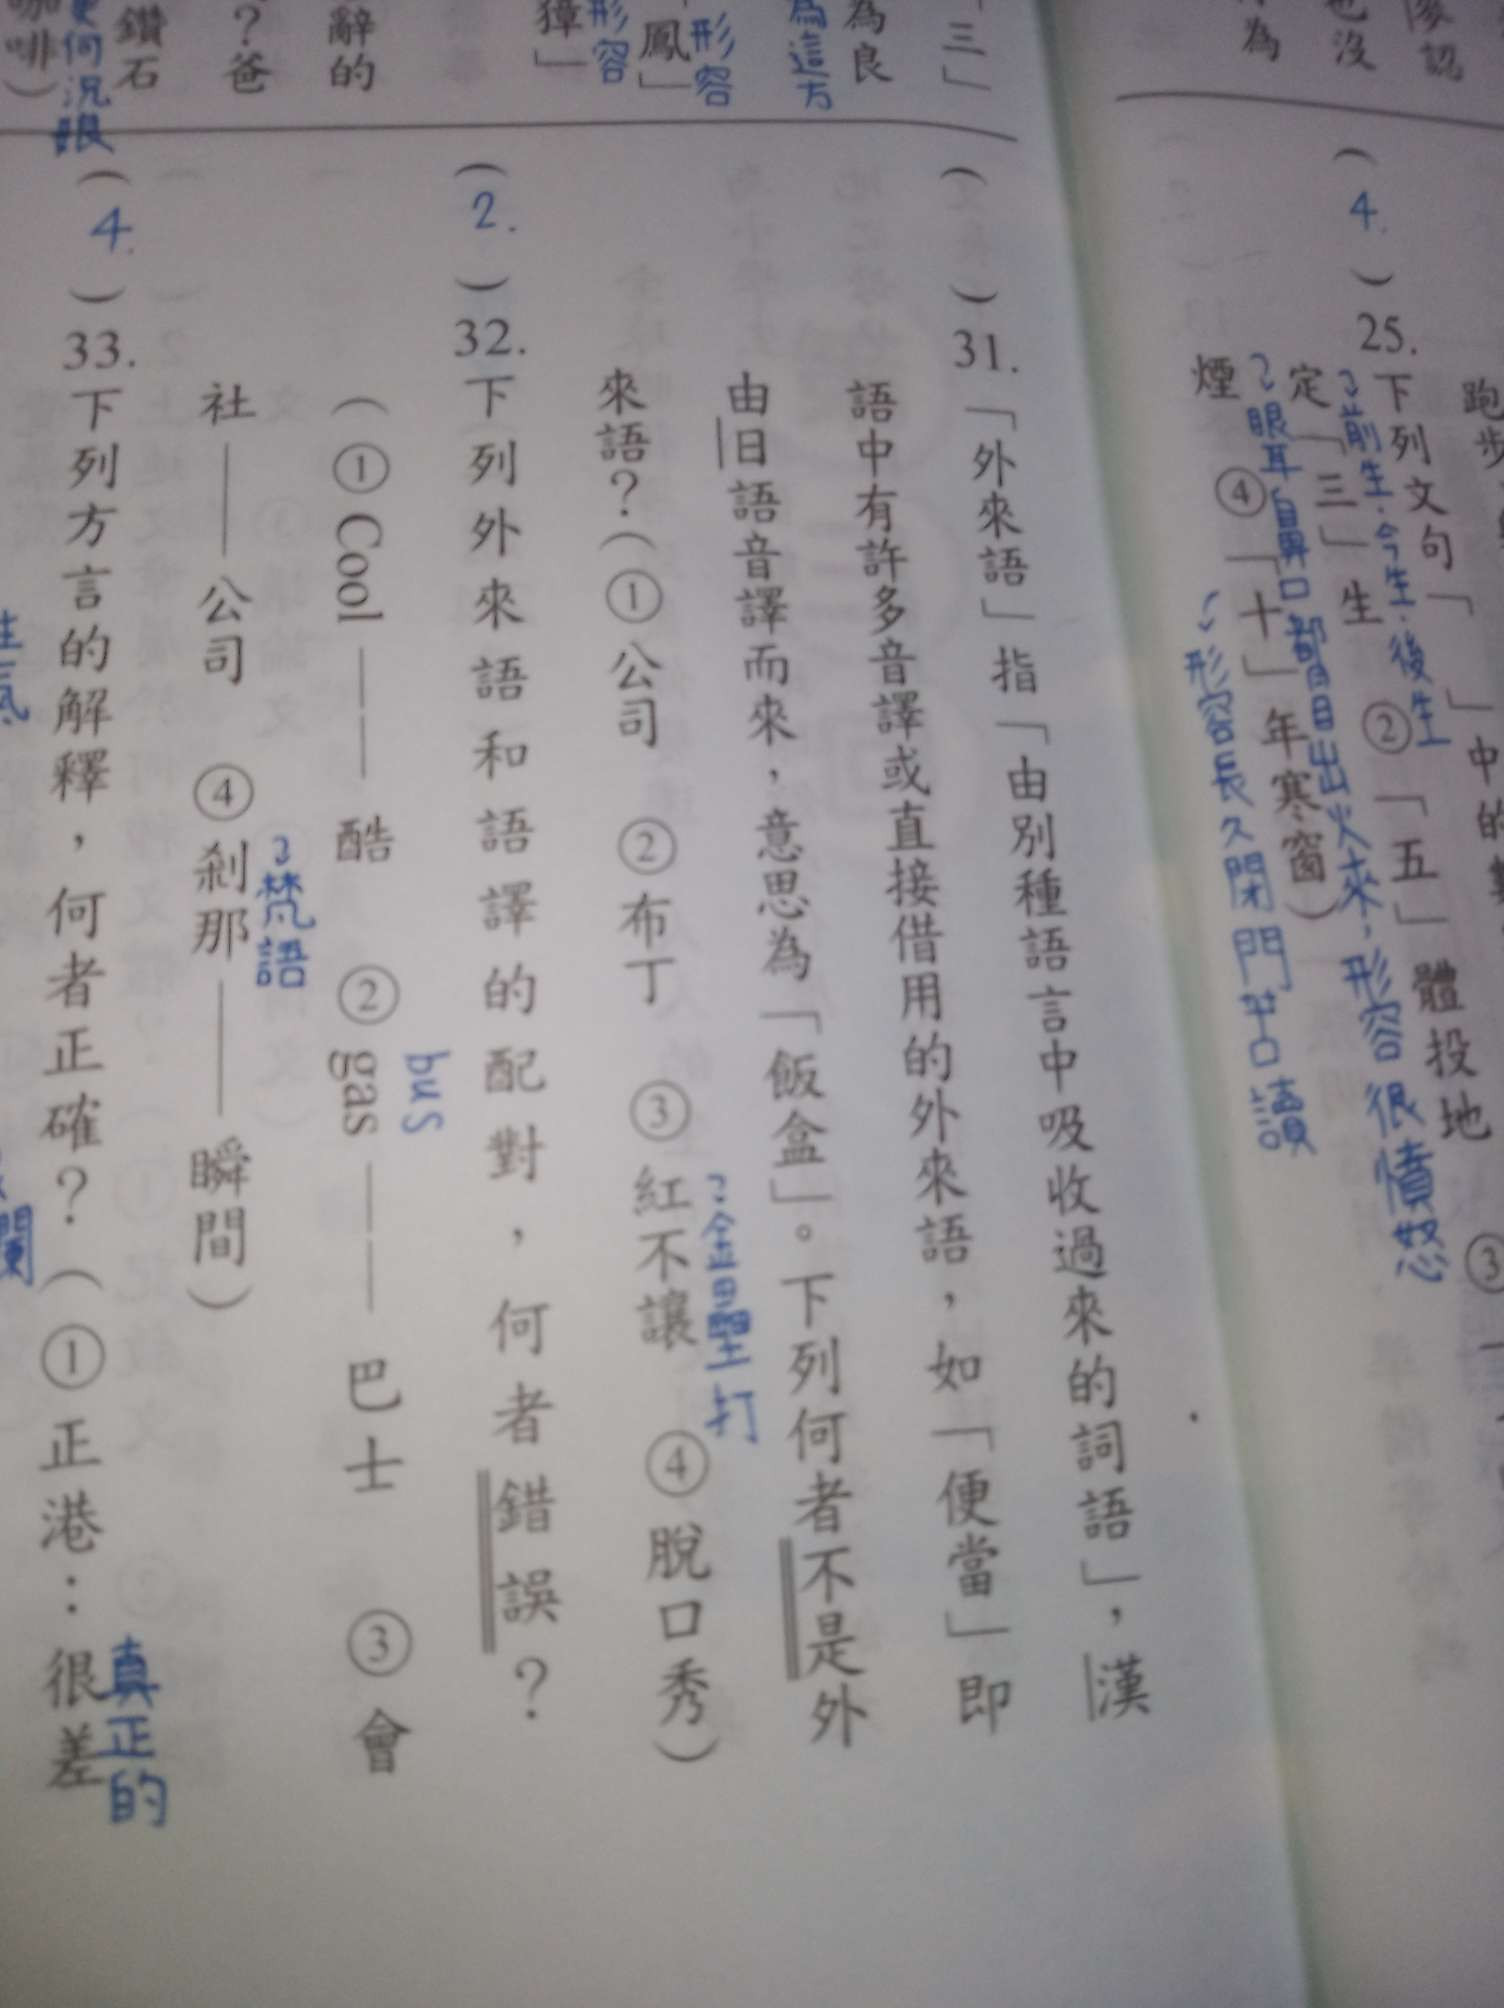 跑步
」中的
( 4. ) 25. 下列文句「
②「五」體投地
③
前生.今生.後生
定「三」生
眼耳鼻口都冒出火來,形容很憤怒
煙 ④「十」年寒窗)
形容長久閉門苦讀
也沒
為
「三」
為良
為這方
形容
鳳」
形容
獐」
辭的
?爸
鑽石
更何況跟
咖啡)
(   ) 31.「外來語」指「由別種語言中吸收過來的詞語」,漢
語中有許多音譯或直接借用的外來語,如「便當」即
由日語音譯而來,意思為「飯盒」。下列何者不是外
來語?(①公司 ②布丁 ③紅不讓 ④脫口秀)
全壘打
( 2. ) 32. 下列外來語和語譯的配對,何者錯誤?
bus
(①Cool——酷 ②gas——巴士 ③會
社——公司 ④剎那——瞬間)
梵語
( 4. ) 33. 下列方言的解釋,何者正確?(①正港:很差
真正的
生氣